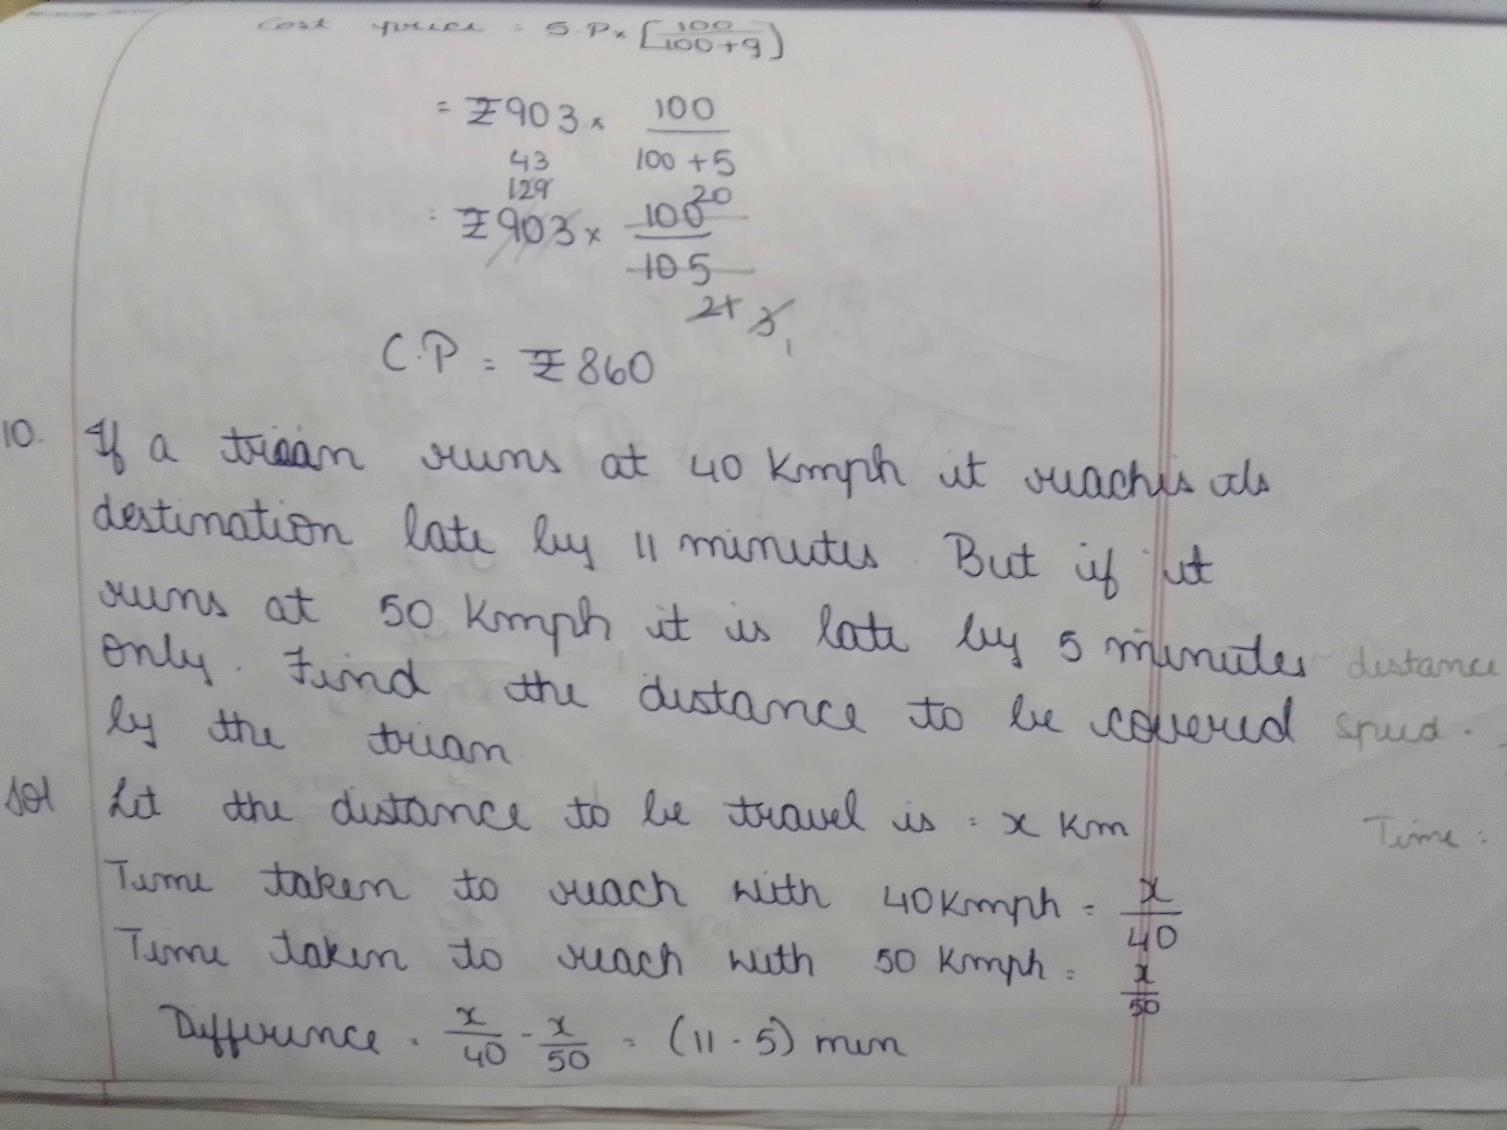 Cost price = S.P x [100/100+g)
= ₹903 x 100/100+5
43
129
= ₹903 x 100 20/105
21 3 1
C.P = ₹860
10. If a trian runs at 40 Kmph it reaches its
destination late by 11 minutes. But if it
runs at 50 Kmph it is late by 5 minutes distance
only. Find the distance to be covered speed.
by the trian
Sol Let the distance to be travel is = x Km
Time :
Time taken to reach with 40Kmph = x/40
Time taken to reach with 50 Kmph = x/50
Difference = x/40 - x/50 = (11 - 5) min